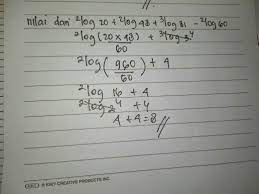 nilai dari ²log 20 + ²log 48 + ³log 81 - ²log 60
²log (20 x 48) + ³log 3⁴
60
²log (960) + 4
60
²log 16 + 4
²log 2⁴ + 4
4 + 4 = 8 //
CREATIVE PRODUCTS INC.